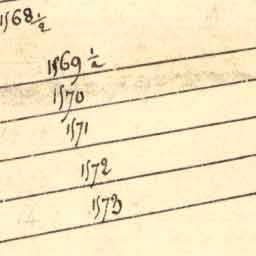 1568 1/2
1569 1/2
1570
1571
1572
1573